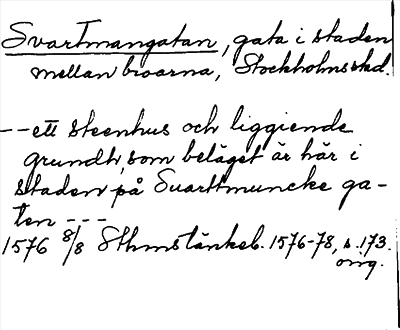 Svartmangatan, gata i staden
mellan broarna, Stockholms stad.
-- ett steenhus och liggiende
grundh, som beläget är här i
staden på Suarttmuncke ga-
ten ---
1576 8/8 Sthmstänkeb. 1576-78, s. 173.
orig.